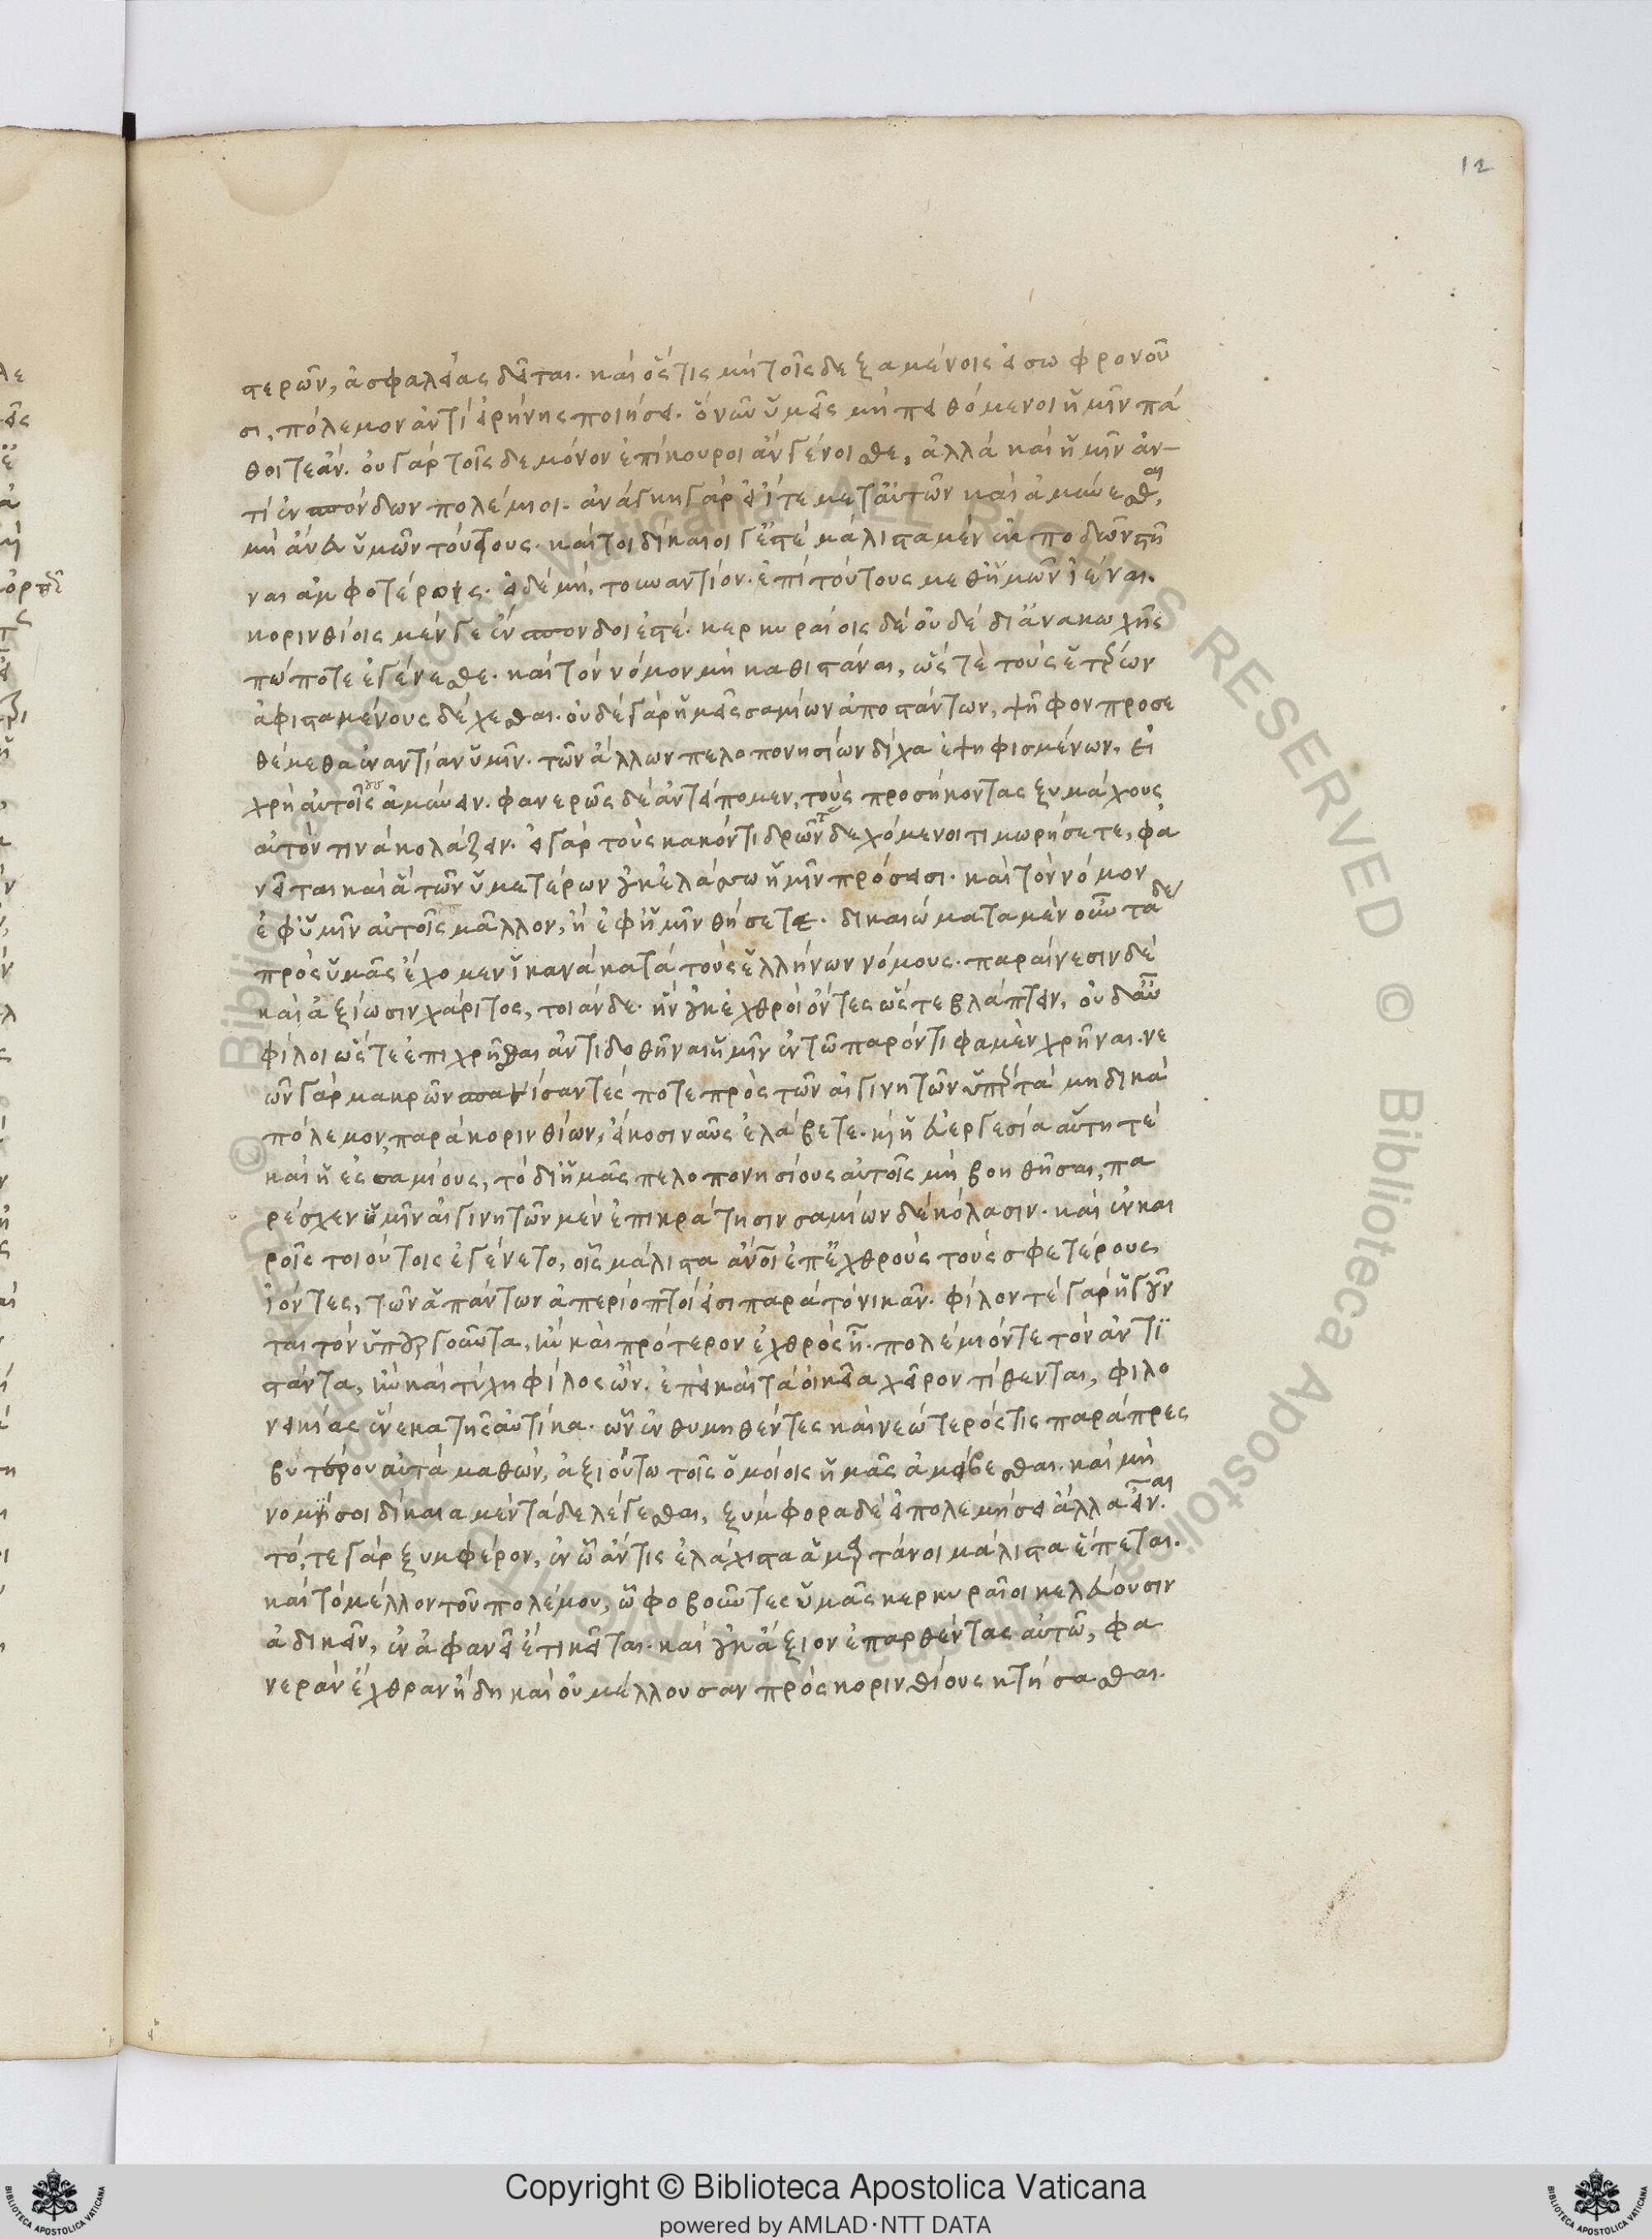 12
στερῶν, ἀσφαλείας δεῖται. καὶ ὅστις μὴ τοῖς δεξαμένοις εἰ σωφρονοῦ
σι, πόλεμον ἀντὶ εἰρήνης ποιήσει. ὃ νῦν ὑμεῖς μὴ πειθόμενοι ἡμῖν πά
θοιτε ἄν. οὐ γὰρ τοῖσδε μόνον ἐπίκουροι ἂν γένοισθε, ἀλλὰ καὶ ἡμῖν ἀν-
τὶ ἐνσπόνδων πολέμιοι. ἀνάγκη γὰρ εἰ ἴτε μετ' αὐτῶν καὶ ἀμύνεσθαι
μὴ ἄνευ ὑμῶν τούτους. καίτοι δίκαιοι γ' ἐστὲ μάλιστα μὲν ἐκποδὼν στῆ
ναι ἀμφοτέροις. εἰ δὲ μὴ, τοὐναντίον. ἐπὶ τούτους μεθ' ἡμῶν ἰέναι.
κορινθίοις μέν γε ἔνσπονδοι ἐστέ. κερκυραίοις δὲ οὐδὲ δι' ἀνακωχῆς
πώποτε ἐγένεσθε. καὶ τὸν νόμον μὴ καθιστάναι, ὥστε τοὺς ἑτέρων
ἀφισταμένους δέχεσθαι. οὐδὲ γὰρ ἡμεῖς σαμίων ἀποστάντων, ψῆφον προσε
θέμεθα ἐναντίαν ὑμῖν. τῶν ἄλλων πελοπονησίων δίχα ἐψηφισμένων, εἰ
χρὴ αὐτοῖς ἀμύνειν. φανερῶς δὲ ἀντείπομεν, τοὺς προσήκοντας ξυμάχους
αὐτόν τινα κολάζειν. εἰ γὰρ τοὺς κακόν τι δρῶντας δεχόμενοι τιμωρήσετε, φα
νεῖται καὶ ἃ τῶν ὑμετέρων οὐκ ἐλάσσω ἡμῖν πρόσεισι. καὶ τὸν νόμον
ἐφ' ὑμῖν αὐτοῖς μᾶλλον, ἢ ἐφ' ἡμῖν θήσετε. δικαιώματα μὲν οὖν τάδε
πρὸς ὑμᾶς ἔχομεν ἱκανὰ κατὰ τοὺς ἑλλήνων νόμους. παραίνεσιν δὲ
καὶ ἀξίωσιν χάριτος, τοιάνδε. ἣν οὐκ ἐχθροὶ ὄντες ὥστε βλάπτειν, οὐδ' αὖ
φίλοι ὥστε ἐπιχρῆσθαι ἀντιδοθῆναι ἡμῖν ἐν τῶ παρόντι φαμὲν χρῆναι. νε
ῶν γὰρ μακρῶν σπανίσαντές ποτε πρὸς τῶν αἰγινητῶν ὑπὲρ τὰ μηδικὰ
πόλεμον, παρὰ κορινθίων, εἴκοσι ναῦς ἐλάβετε. καὶ ἡ εὐεργεσία αὕτη τὲ
καὶ ἡ ἐς σαμίους, τὸ δι' ἡμᾶς πελοπονησίους αὐτοῖς μὴ βοηθῆσαι, πα
ρέσχεν ὑμῖν αἰγινητῶν μὲν ἐπικράτησιν σαμίων δὲ κόλασιν. καὶ ἐν και
ροῖς τοιούτοις ἐγένετο, οἷς μάλιστα ἄνοι ἐπ' ἐχθροὺς τοὺς σφετέρους
ἰόντες, τῶν ἁπάντων ἀπερίοπτοί εἰσι παρὰ τὸ νικᾶν. φίλον τὲ γὰρ ἡγοῦν
ται τὸν ὑπουργοῦντα, ἢν καὶ πρότερον ἐχθρὸς ἦ. πολέμιόν τε τὸν ἀντι
στάντα, ἢν καὶ τύχη φίλος ὤν. ἐπεὶ καὶ τὰ οἰκεῖα χεῖρον τίθενται, φιλο
νεικίας ἕνεκα τῆς αὐτίκα. ὧν ἐνθυμηθέντες καὶ νεώτερός τις παρὰ πρες
βυτέρου αὐτὰ μαθὼν, ἀξιούτω τοῖς ὁμοίοις ἡμᾶς ἀμείβεσθαι. καὶ μὴ
νομίσοι δίκαια μὲν τάδε λέγεσθαι, ξύμφορα δὲ εἰ πολεμήσει ἄλλα εἶναι.
τό, τε γὰρ ξυμφέρον, ἐν ὧ ἄν τις ἐλάχιστα ἁμαρτάνοι μάλιστα ἕπεται.
καὶ τὸ μέλλον τοῦ πολέμου, ὧ φοβοῦντες ὑμᾶς κερκυραῖοι κελεύουσιν
ἀδικεῖν, ἐν ἀφανεῖ ἔτι κεῖται. καὶ οὐκ ἄξιον ἐπαρθέντας αὐτῶ, φα
νερὰν ἔχθραν ἤδη καὶ οὐ μέλλουσαν πρὸς κορινθίους κτήσασθαι.
© Biblioteca Apostolica Vaticana ALL RIGHTS RESERVED
Copyright © Biblioteca Apostolica Vaticana
powered by AMLAD·NTT DATA
BIBLIOTECA APOSTOLICA VATICANA
BIBLIOTECA APOSTOLICA VATICANA